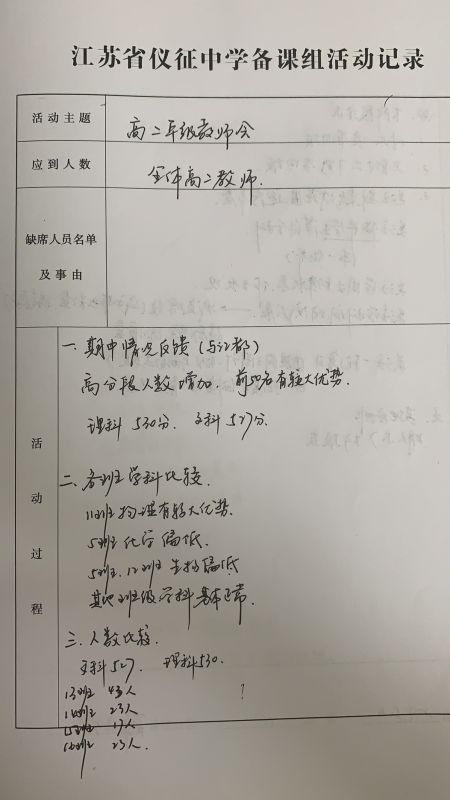 江苏省仪征中学备课组活动记录
活动主题
高二年级教师会
应到人数
全体高二教师.
缺席人员名单
及事由
活动过程
一. 期中情况反馈(与江都)
高分段人数增加. 前50名有较大优势.
理科 530分. 文科 527分.
二. 各班学科比较.
11班物理有较大优势.
5班化学偏低.
5班. 12班生物偏低
其他班级学科基本正常.
三. 人数比较.
文科 527. 理科 530.
13班 43人
14班 23人
15班 17人
16班 23人.